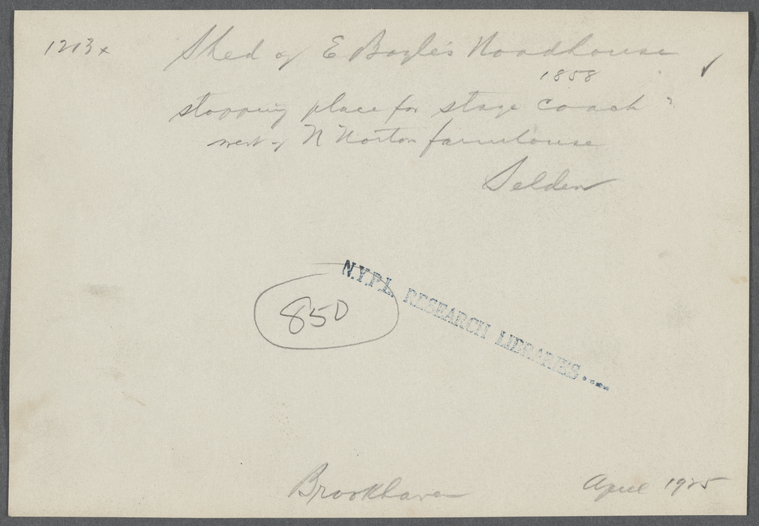 1213x
Shed of E Bayles Roadhouse
1858
stopping place for stage coach
west of N Norton farmhouse
Selden
850
N.Y.P.L. RESEARCH LIBRARIES....
Brookhaven
April 1925